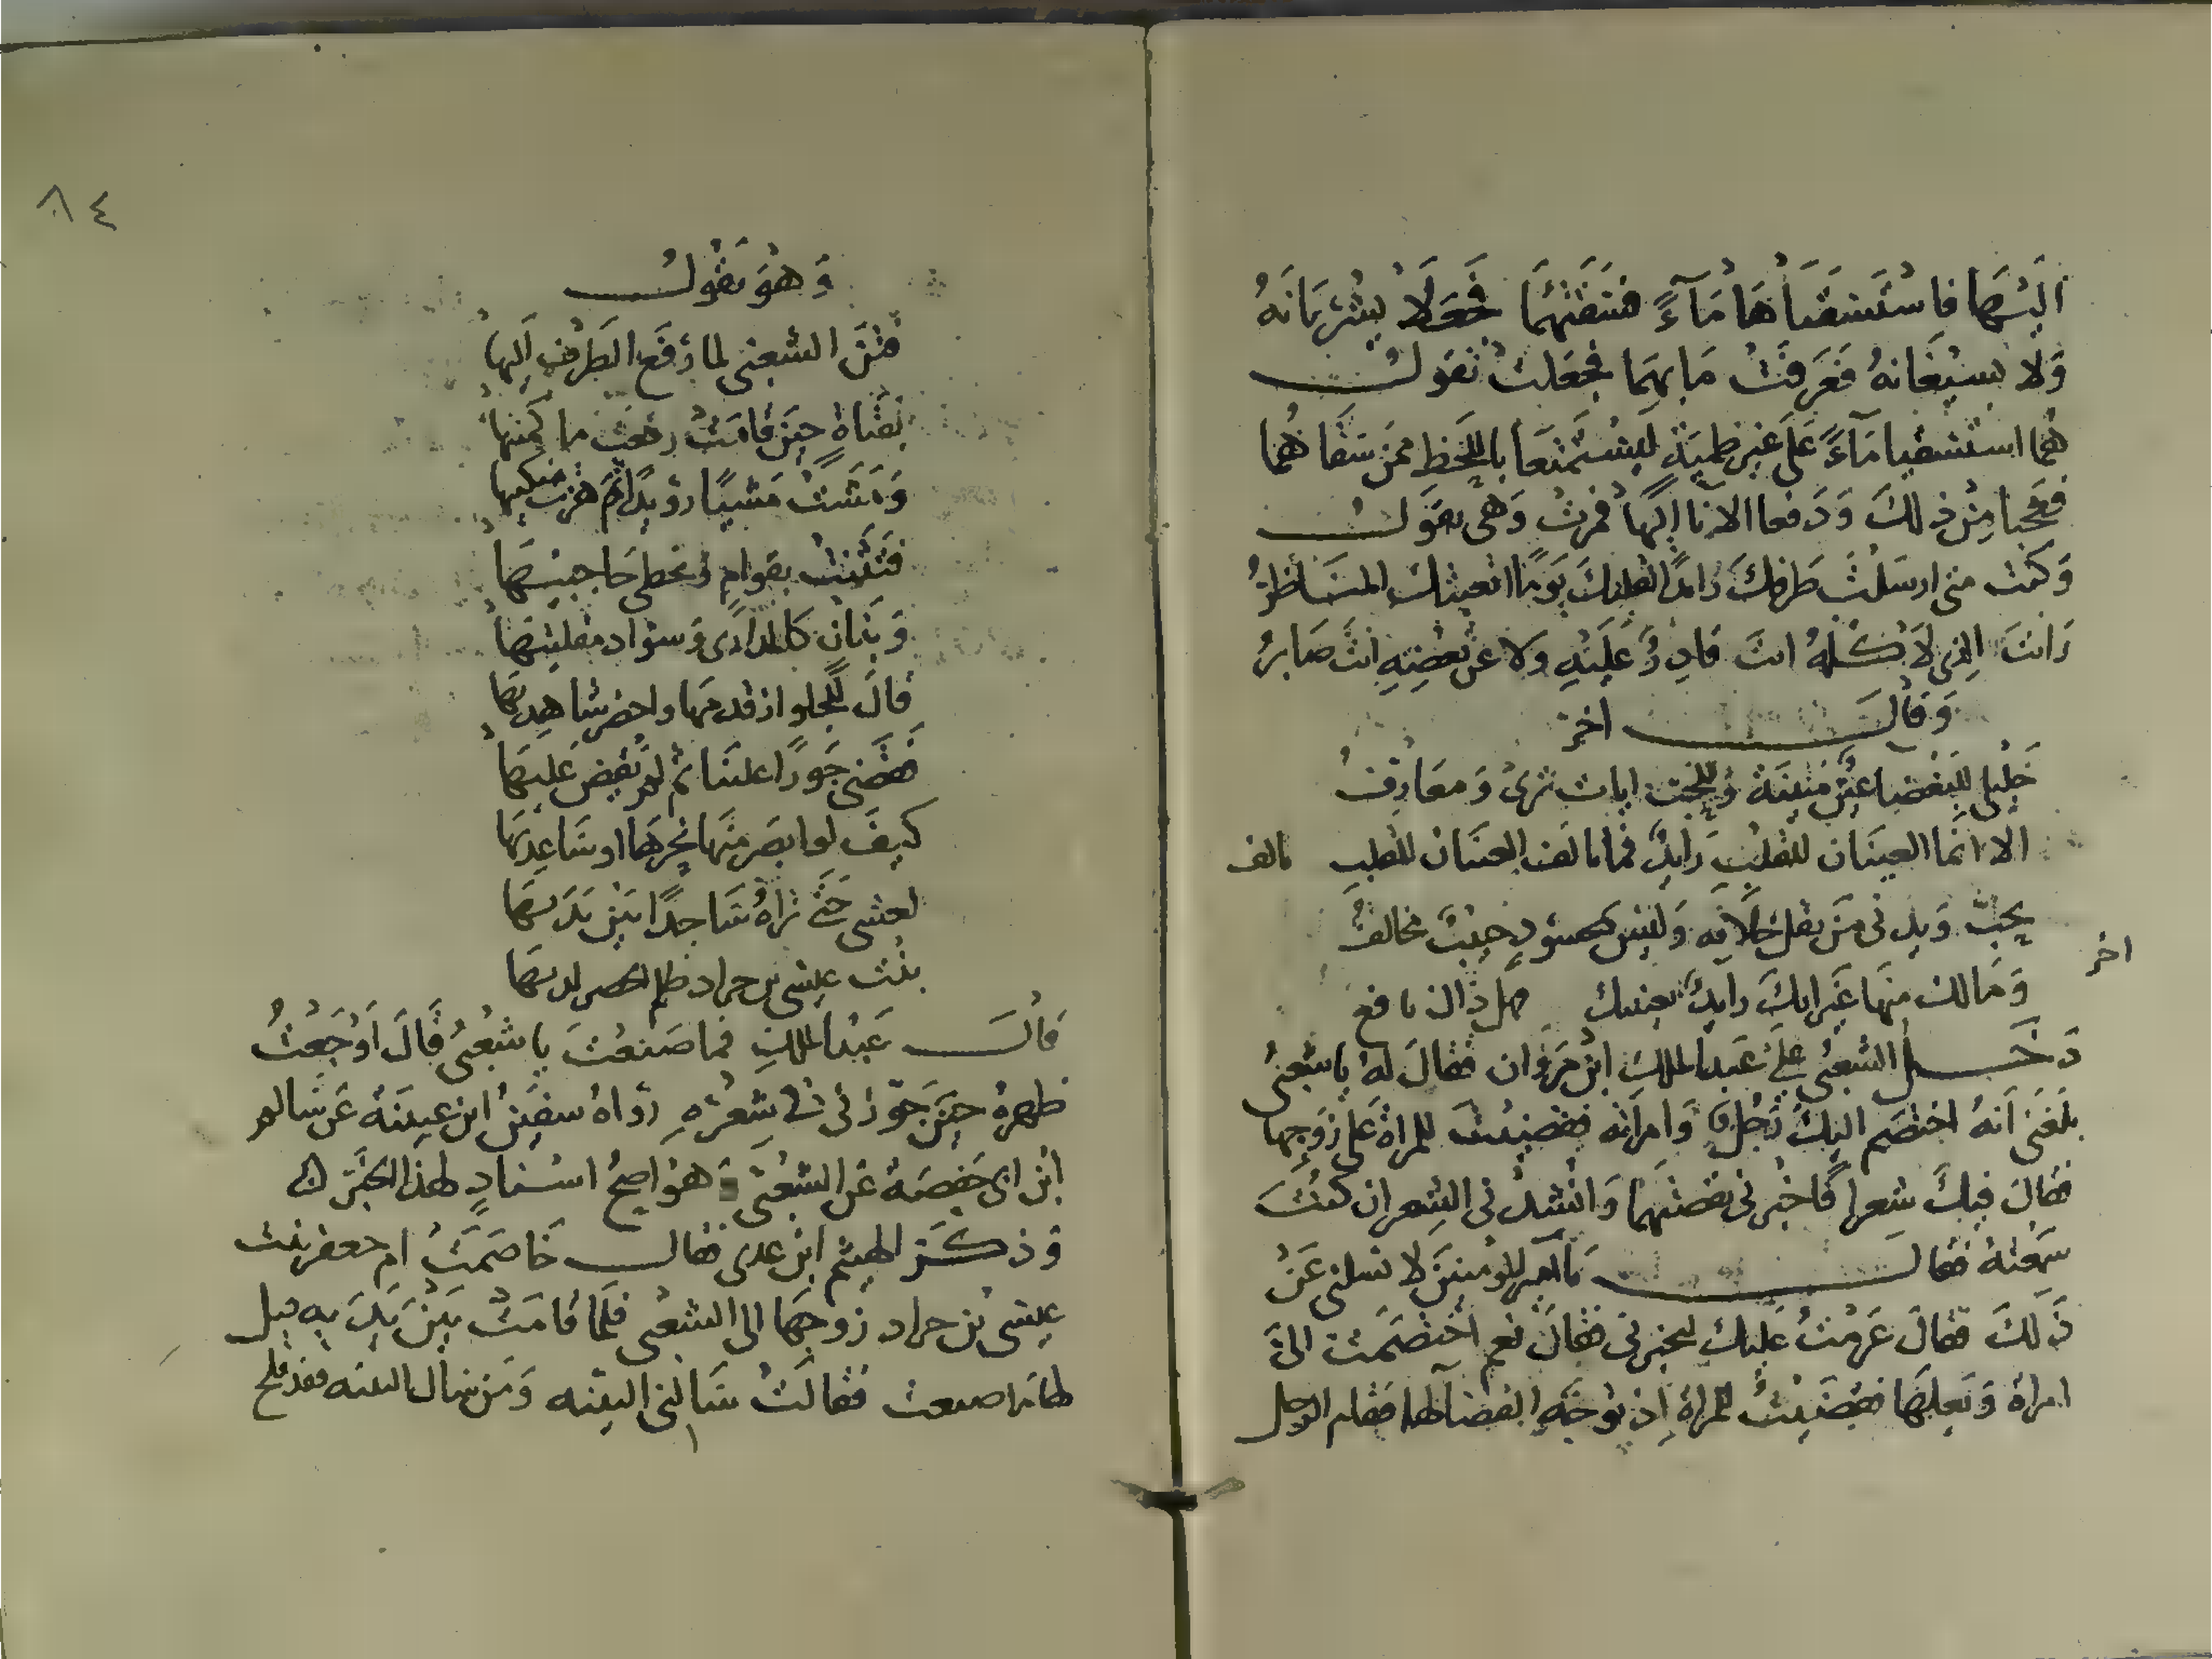 اليها فاستسقياها مآءً فسقتهما فجعلا يشربانه
ولا يسيغانه فعرفت ما بهما فجعلت تقول
هما استسقيا مآءً على غير ظمية ليستمتعا باللحظ ممن سقاهما
فعجبا من ذلك ودفعا الانا اليها فمرت وهي تقول
وكنت متى ارسلت طرفك رايدا لقلبك يوما اتعبتك المناظر
رات الذي لا كله انت قادر عليه ولا عن بعضه انت صابر
وقال اخر
خليلي للبغضا عين مبينة وللحب ايات ترى ومعارف
الا انما العينان للقلب رايد فما تالف العينان للقلب تالف
يحب ويدني من يقل خلافه وليس بمحبوب حبيب مخالف
اخر
وما لك منها غير انك رايد بعينيك هل ذاك نافع
دخل الشعبي على عبد الملك ابن مروان فقال له يا شعبي
بلغني انه اختصم اليك رجل وامراته فقضيت للمراة على زوجها
فقال فيك شعرا فاخبرني بقصتهما وانشدني الشعر ان كنت
سمعته فقال يا امير المومنين لا تسلني عن
ذلك فقال عزمت عليك لتخبرني فقال نعم اختصمت الي
امراة وبعلها فقضيت للمراة اذ توجه القضا لها فقام الرجل
٨٤
وهو يقول
فتن الشعبي لما رفع الطرف اليها
بفتاة حين قامت رفعت ماكمتيها
ومشت مشيا رويدا ثم هزت منكبيها
فتنت بقوام وبخطي حاجبيها
وبنان كالمدارى وسواد مقلتيها
قال للجلواز قدمها واحضر شاهديها
فقضى جورا علينا ثم لم يقض عليها
كيف لو ابصر منها نحرها او ساعديها
لصبى حتى تراه ساجدا بين يديها
بنت عيسى بن جراد ظلم الخصم لديها
قال عبد الملك فما صنعت يا شعبي قال اوجعت
ظهره حين جورني في شعره رواه سفين ابن عيينة عن سالم
ابن ابي حفصة عن الشعبي وهو اصح اسناد لهذا الخبر
وذكر الهيثم ابن عدي فقال خاصمت ام جعفر بنت
عيسى بن جراد زوجها الى الشعبي فلما قامت بين يديه قيل
لها ما صنعت فقالت سالني البينه ومن سال البينه فقد فلح